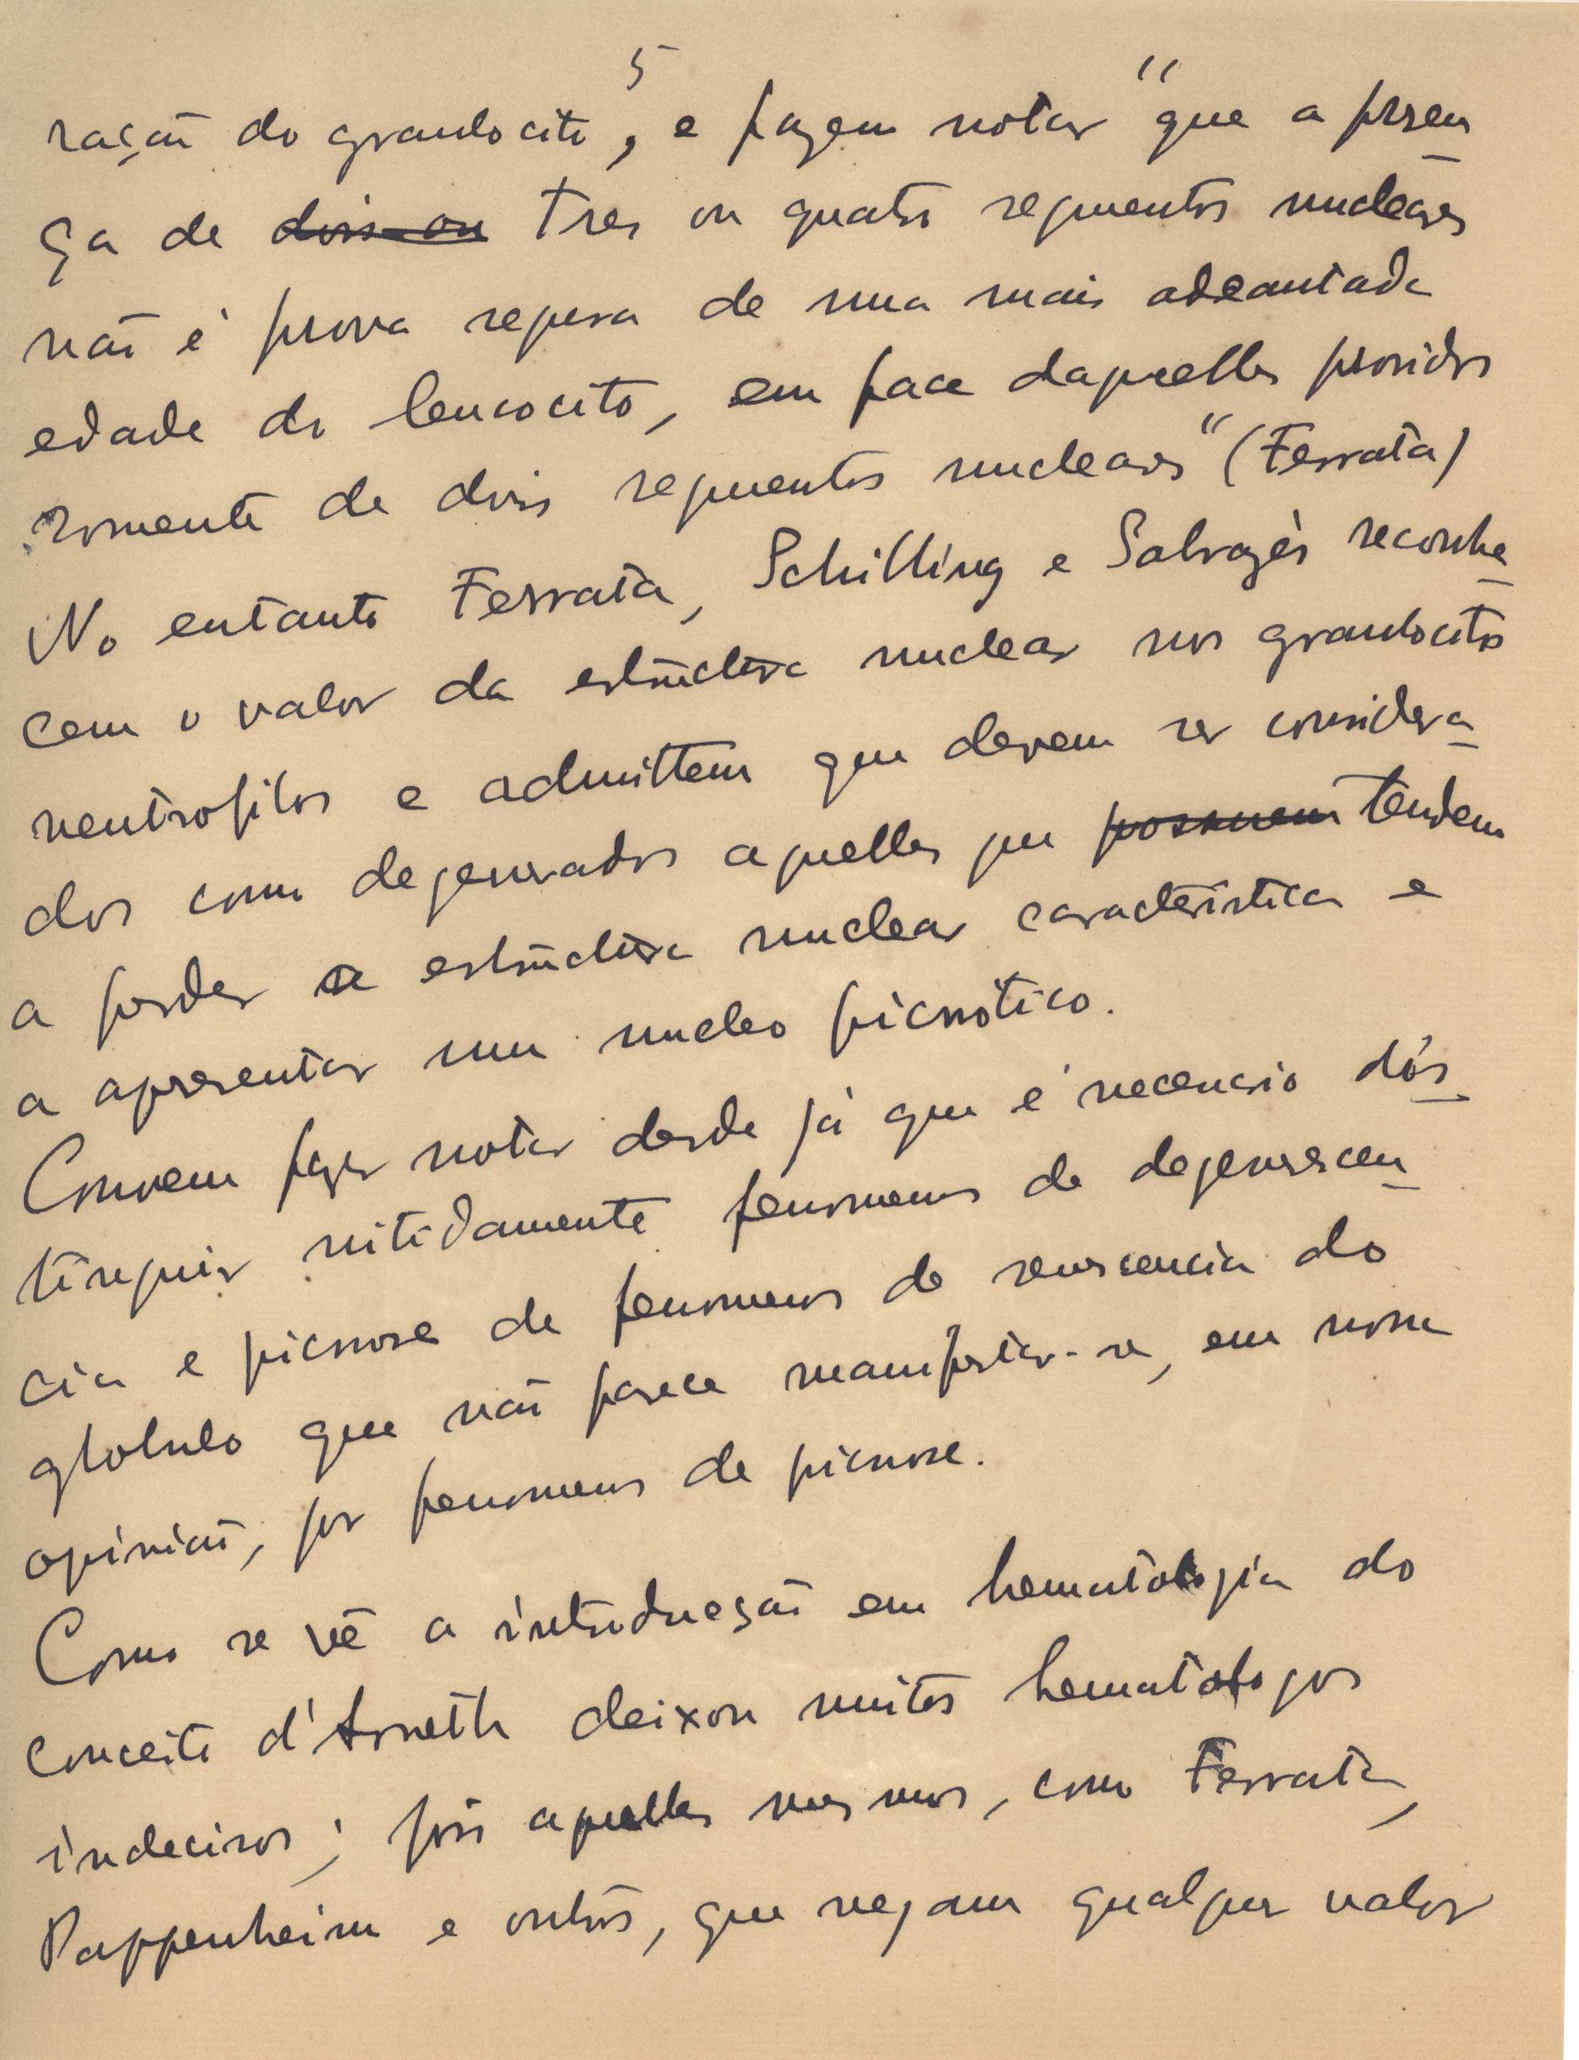 5
ração do granulocito, e fazem notar "que a presen
ça de dois ou tres ou quatro segmentos nucleares
não é prova segura de uma mais adeantada
edade do leucocito, em face daquelles providos
somente de dois segmentos nucleares" (Ferrata)
No entanto Ferrata, Schilling e Salvagès reconhe
cem o valor da estructura nuclear nos granulocitos
neutrofilos e admittem que devem ser considera
dos como degenerados aquelles que possuem tendem
a perder a estructura nuclear caracteristica e
a apresentar um nucleo picnotico.
Convem fazer notar desde já que é necessario dis
tinguir nitidamente fenomenos de degenerescen
cia e picnose de fenomenos de senescencia do
globulo que não parece manifestar-se, em nossa
opinião, por fenomenos de picnose.
Como se vê a introducção em hematologia do
conceito d'Arneth deixou muitos hematologos
indecisos; pois aquelles mesmos, como Ferrata,
Pappenheim e outros, que negam qualquer valor